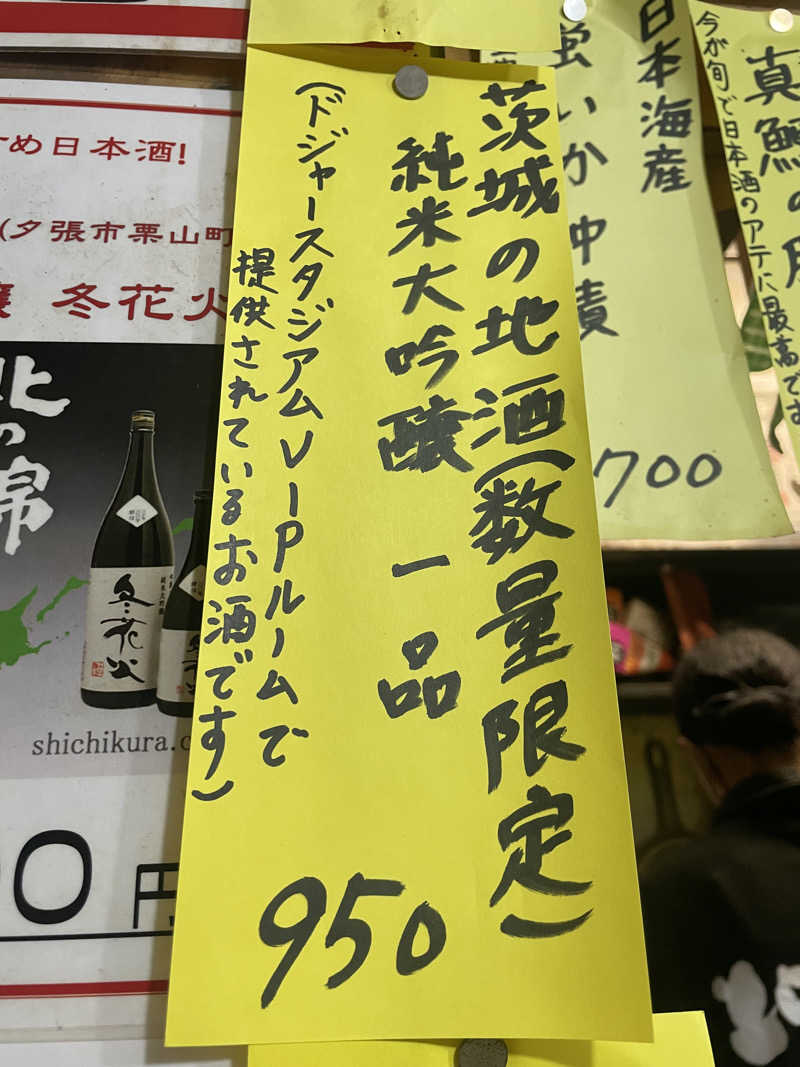 茨城の地酒(数量限定)
純米大吟醸 一品
(ドジャースタジアムVIPルームで
提供されているお酒です)
950
日本海産
蛍いか沖漬
700
今が旬で日本酒のアテに最高です
真鱈の
め日本酒!
(夕張市栗山町
冬花火
北の錦
冬花火
shichikura.c
0円